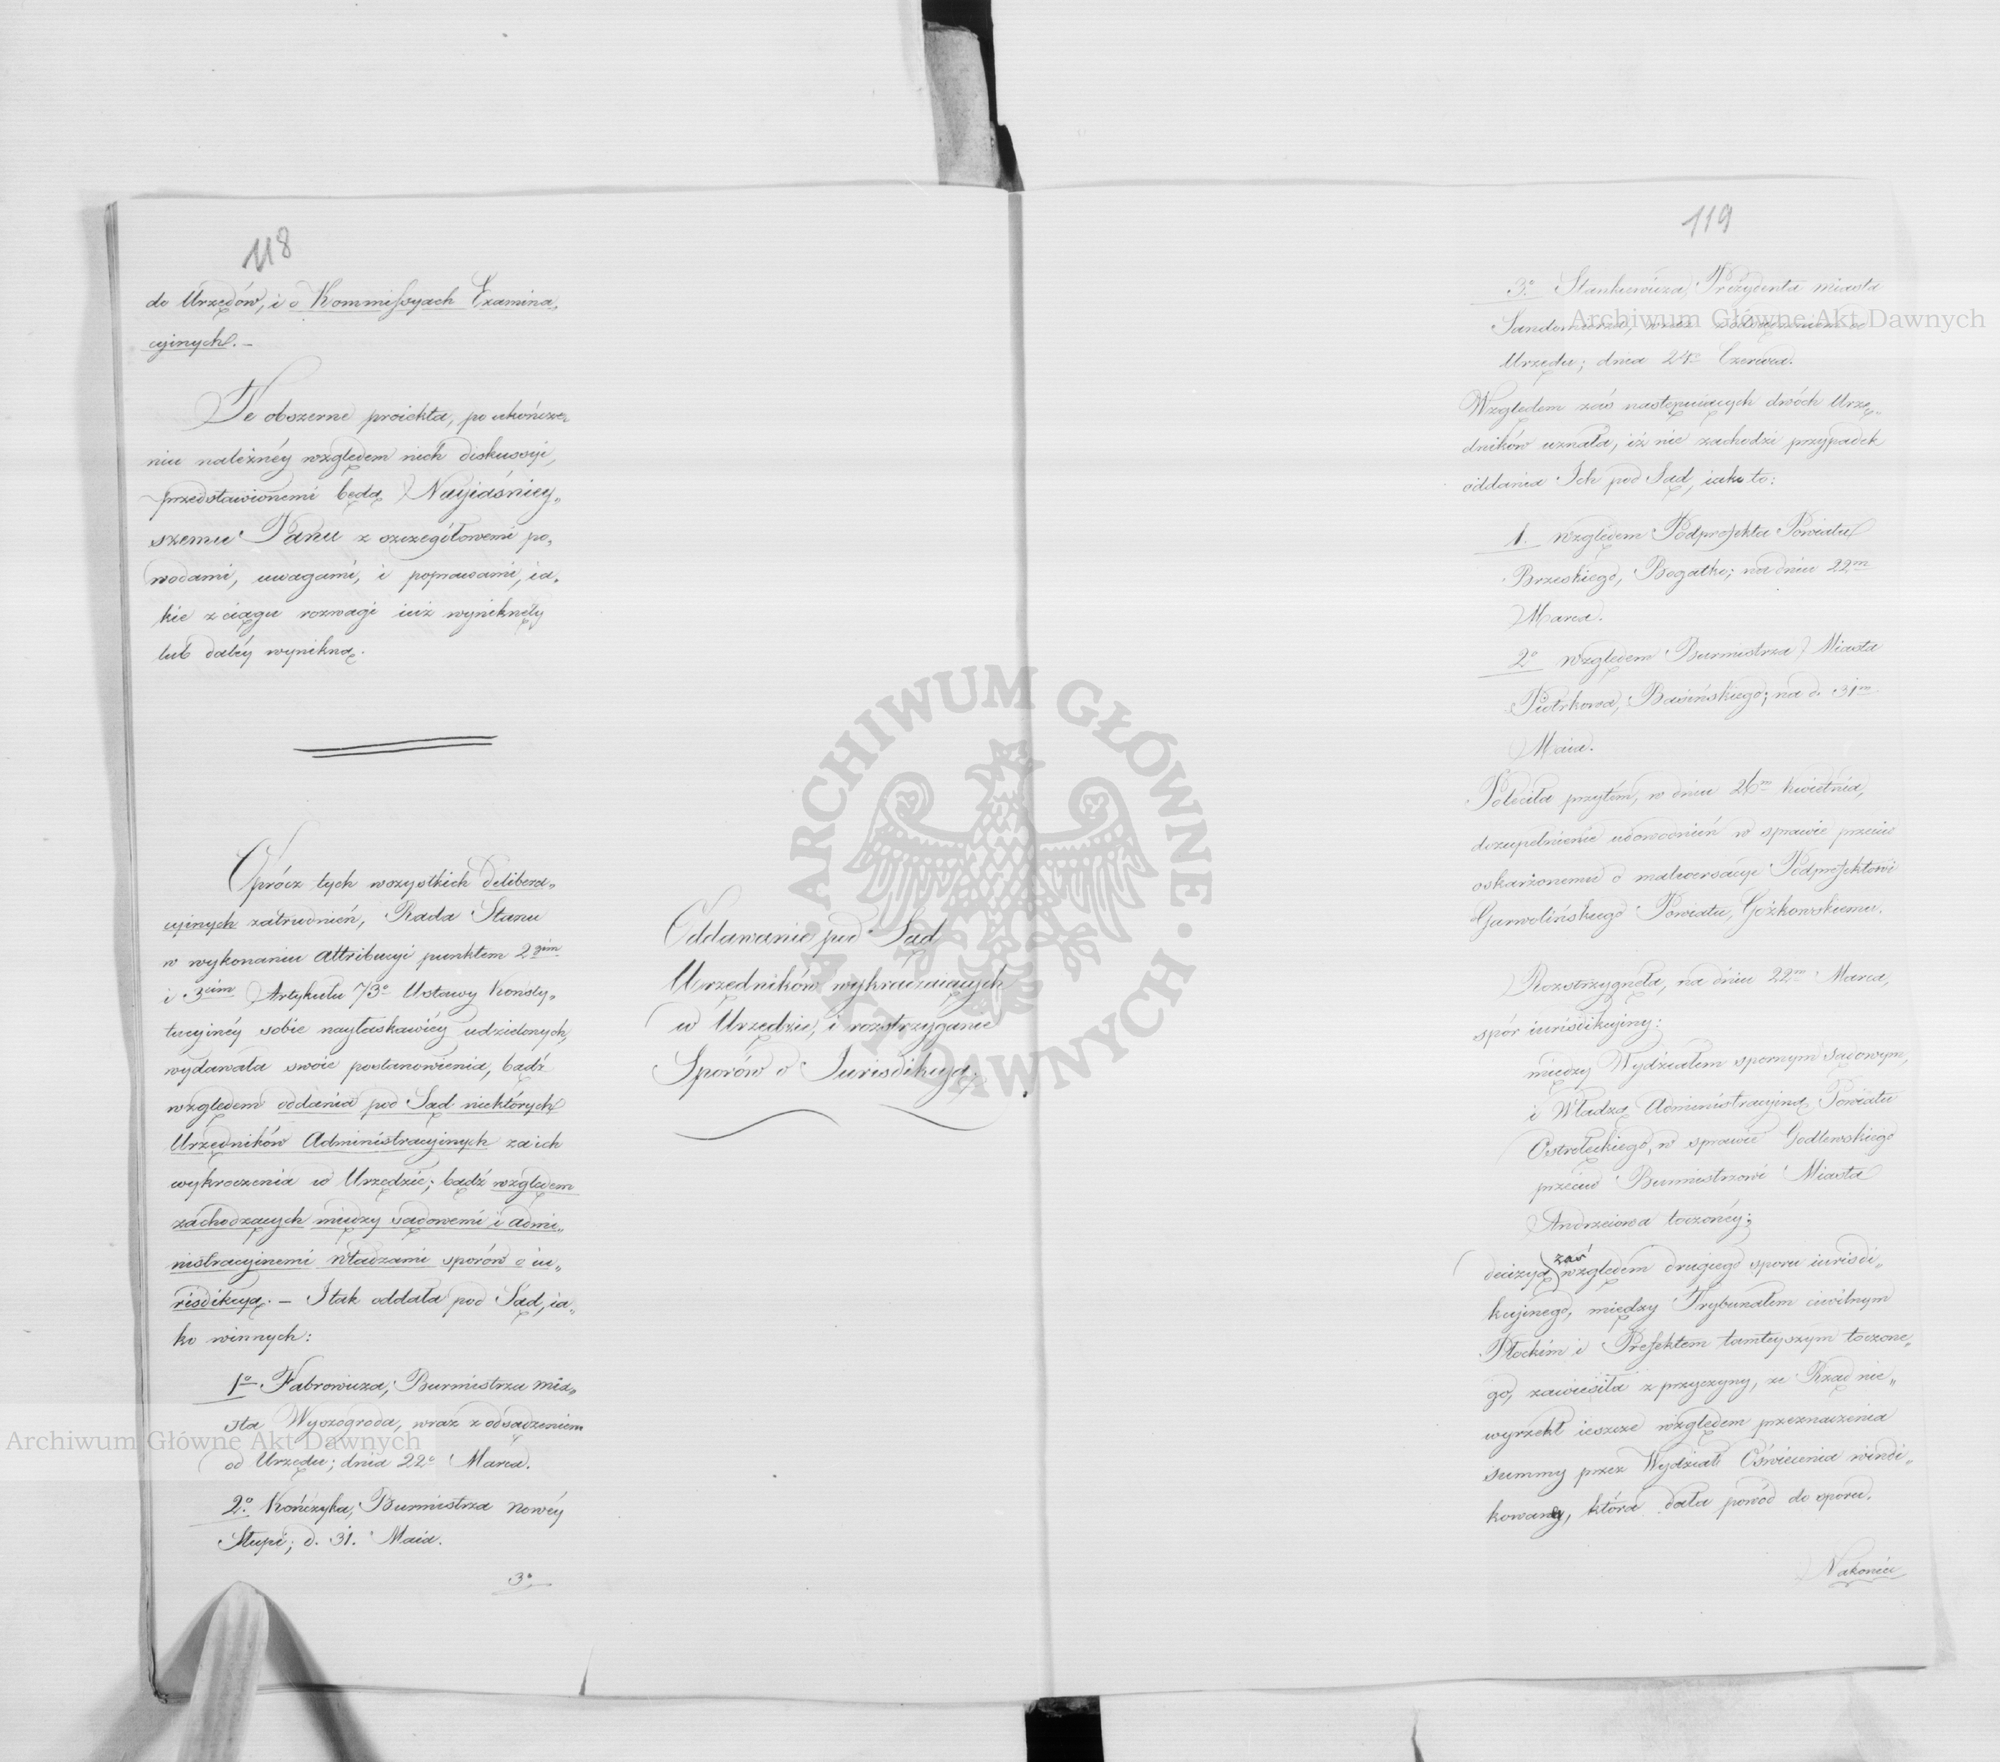 118
do Urzędów, i o Kommissyach Examina„
cyinych. —
Te obszerne proiekta, po ukończe„
niu należnéy względem nich diskussyi,
przedstawionemi będą Nayiaśniey„
szemu Panu z szczegółowemi po„
wodami, uwagami, i poprawami, ia„
kie z ciągu rozwagi iuż wyniknęły
lub daléy wynikną.
Oprócz tych wszystkich delibera„
cyinych zatrudnień, Rada Stanu
w wykonaniu attribucyi punktem 2gim
i 3cim Artykułu 73o Ustawy Konsty„
tucyinéy sobie nayłaskawiéy udzielonych,
wydawała swoie postanowienia, bądź
względem oddania pod Sąd niektórych
Urzędników Administracyinych za ich
wykroczenia w Urzędzie; bądź względem
zachodzących między sądowemi i admi„
nistracyinemi władzami sporów o iu„
risdikcyą. — I tak oddała pod Sąd, ia„
ko winnych:
1o Fabrowicza, Burmistrza mia„
sta Wyszogroda, wraz z odsądzeniem
od Urzędu; dnia 22o Marca.
2o. Kończyka, Burmistrza Nowéy
Słupi; d. 31. Maia.
3o
Oddawanie pod Sąd
Urzędników wykraczaiących
w Urzędzie, i rozstrzyganie
Sporów o Iurisdikcyą.
119
3o. Stankiewicza, Prezydenta miasta
Sandomierza, wraz z odsądzeniem od
Urzędu; dnia 24o Czerwca.
Względem zaś następuiących dwóch Urzę„
dników uznała, iż nie zachodzi przypadek
oddania Ich pod Sąd, iako to:
1. względem Podprefekta Powiatu
Brzeskiego, Bogatko; na dniu 22m
Marca.
2o względem Burmistrza Miasta
Piotrkowa, Basińskiego; na d. 31m
Maia.
Poleciła przytém, w dniu 26m Kwietnia,
dozupełnienie udowodnień w sprawie przeciw
oskarżonemu o malwersacye Podprefektowi
Garwolińskiego Powiatu, Gożkowskiemu.
Rozstrzygnęła, na dniu 22m Marca,
spór iurisdikcyiny:
między Wydziałem spornym sądowym,
i Władzą Administracyiną Powiatu
Ostrołęckiego, w sprawie Godlewskiego
przeciw Burmistrzowi Miasta
Andrzeiowa toczonéy;
decizyą zaś względem drugiego sporu iurisdi„
kcyinego, między Trybunałem ciwilnym
Płockim i Prefektem tamteyszym toczone„
go, zawiesiła z przyczyny, że Rząd nie„
wyrzekł ieszcze względem przeznaczenia
summy przez Wydział Oświecenia windi„
kowanéy, która dała powód do sporu.
Nakoniec
ARCHIWUM GŁÓWNE AKT DAWNYCH
Archiwum Główne Akt Dawnych
Archiwum Główne Akt Dawnych